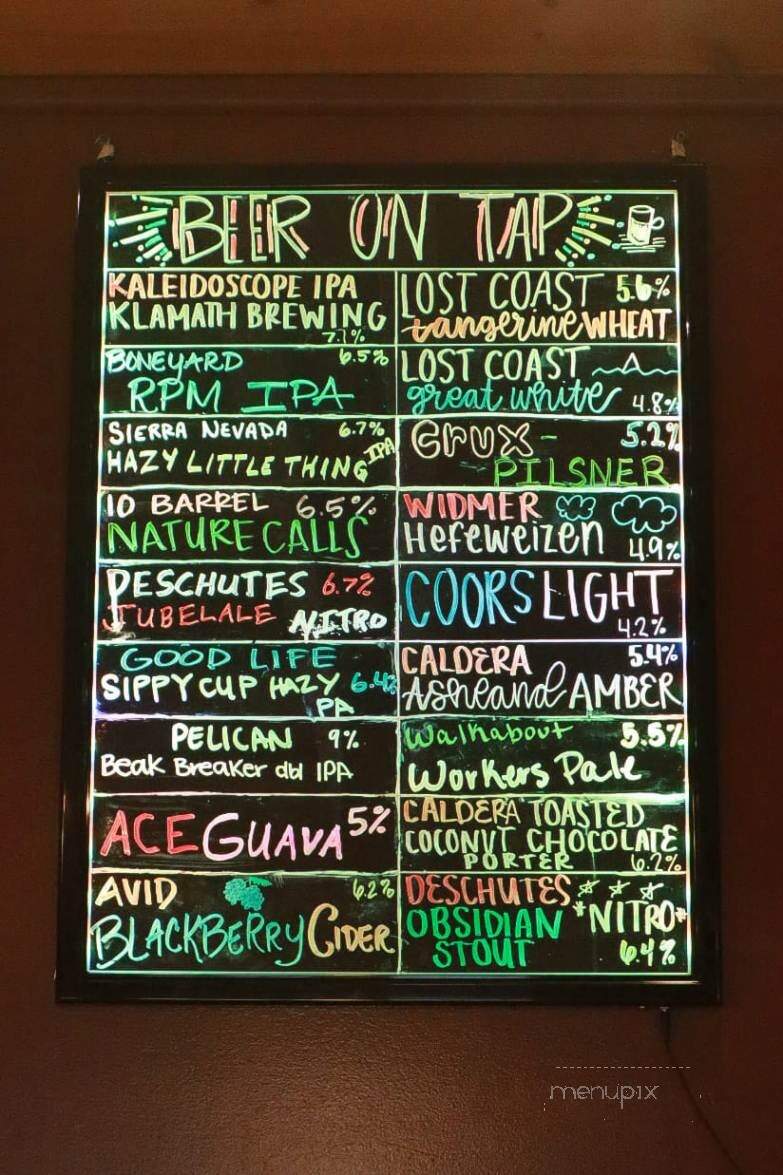 BEER ON TAP
KALEIDOSCOPE IPA
KLAMATH BREWING
7.1%
BONEYARD 6.5%
RPM IPA
SIERRA NEVADA 6.7%
HAZY LITTLE THING IPA
10 BARREL 6.5%
NATURE CALLS
DESCHUTES 6.7%
JUBELALE NITRO
GOOD LIFE
SIPPY CUP HAZY 6.4%
PA
PELICAN 9%
Beak Breaker dbl IPA
ACE GUAVA 5%
AVID 6.2%
BLACKBERRY CIDER
LOST COAST 5.6%
tangerine WHEAT
LOST COAST
great white 4.8%
Crux - 5.2%
PILSNER
WIDMER
Hefeweizen 4.9%
COORS LIGHT
4.2%
CALDERA 5.4%
Ashland AMBER
Walkabout 5.5%
Workers Pale
CALDERA TOASTED
COCONUT CHOCOLATE
PORTER 6.2%
DESCHUTES
OBSIDIAN *NITRO*
STOUT 6.4%
menupix